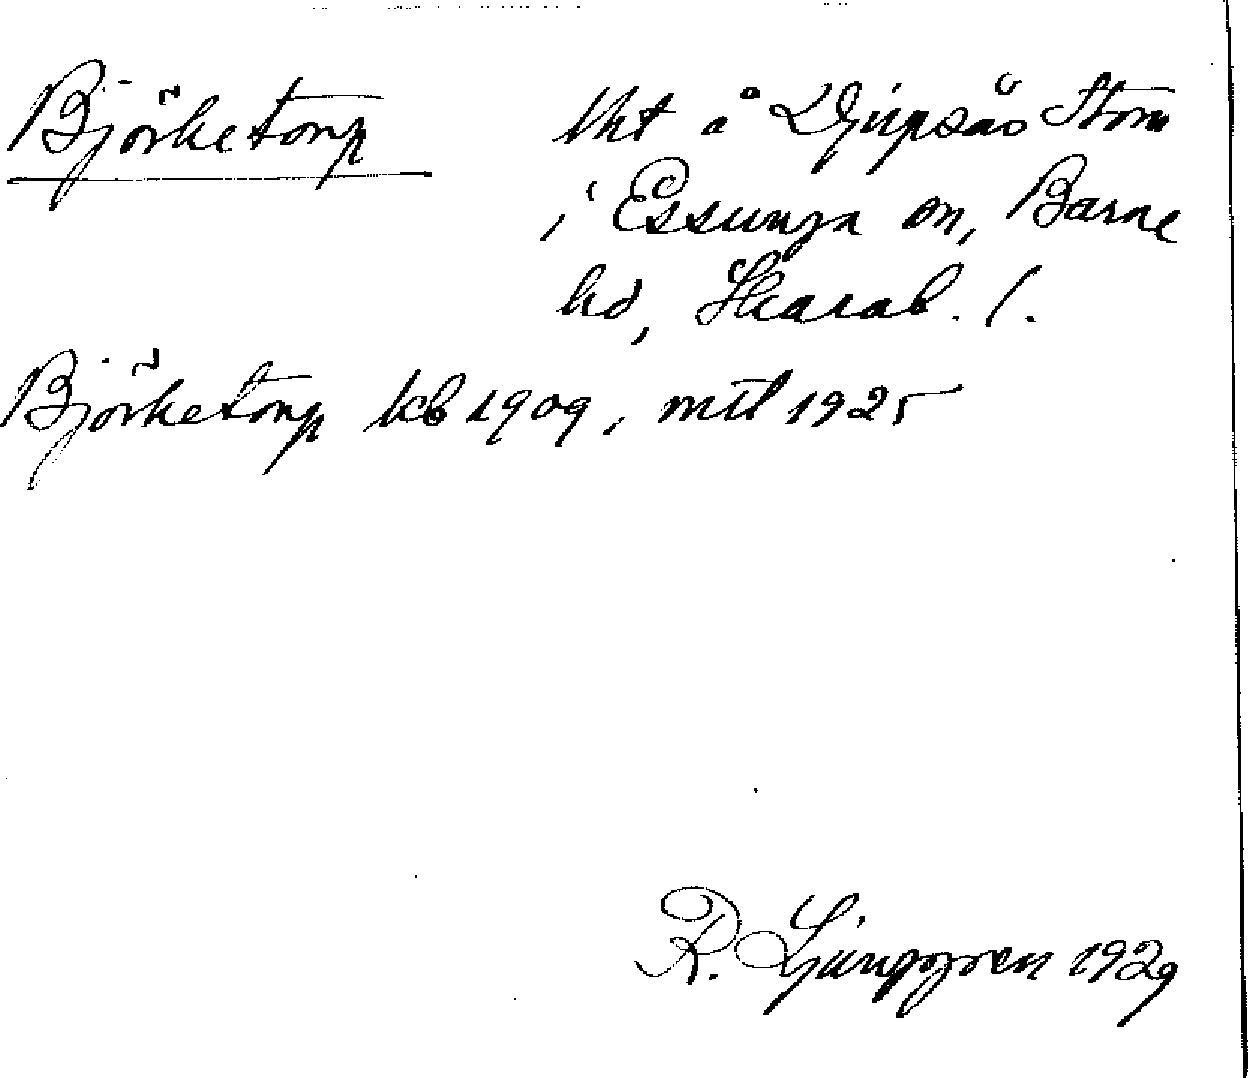 Björketorp
lht å Djupsås Storm
i Essunga sn, Barne
hd, Skarab. l.
Björketorp kb 1909, mtl 1925
R. Ljunggren 1929